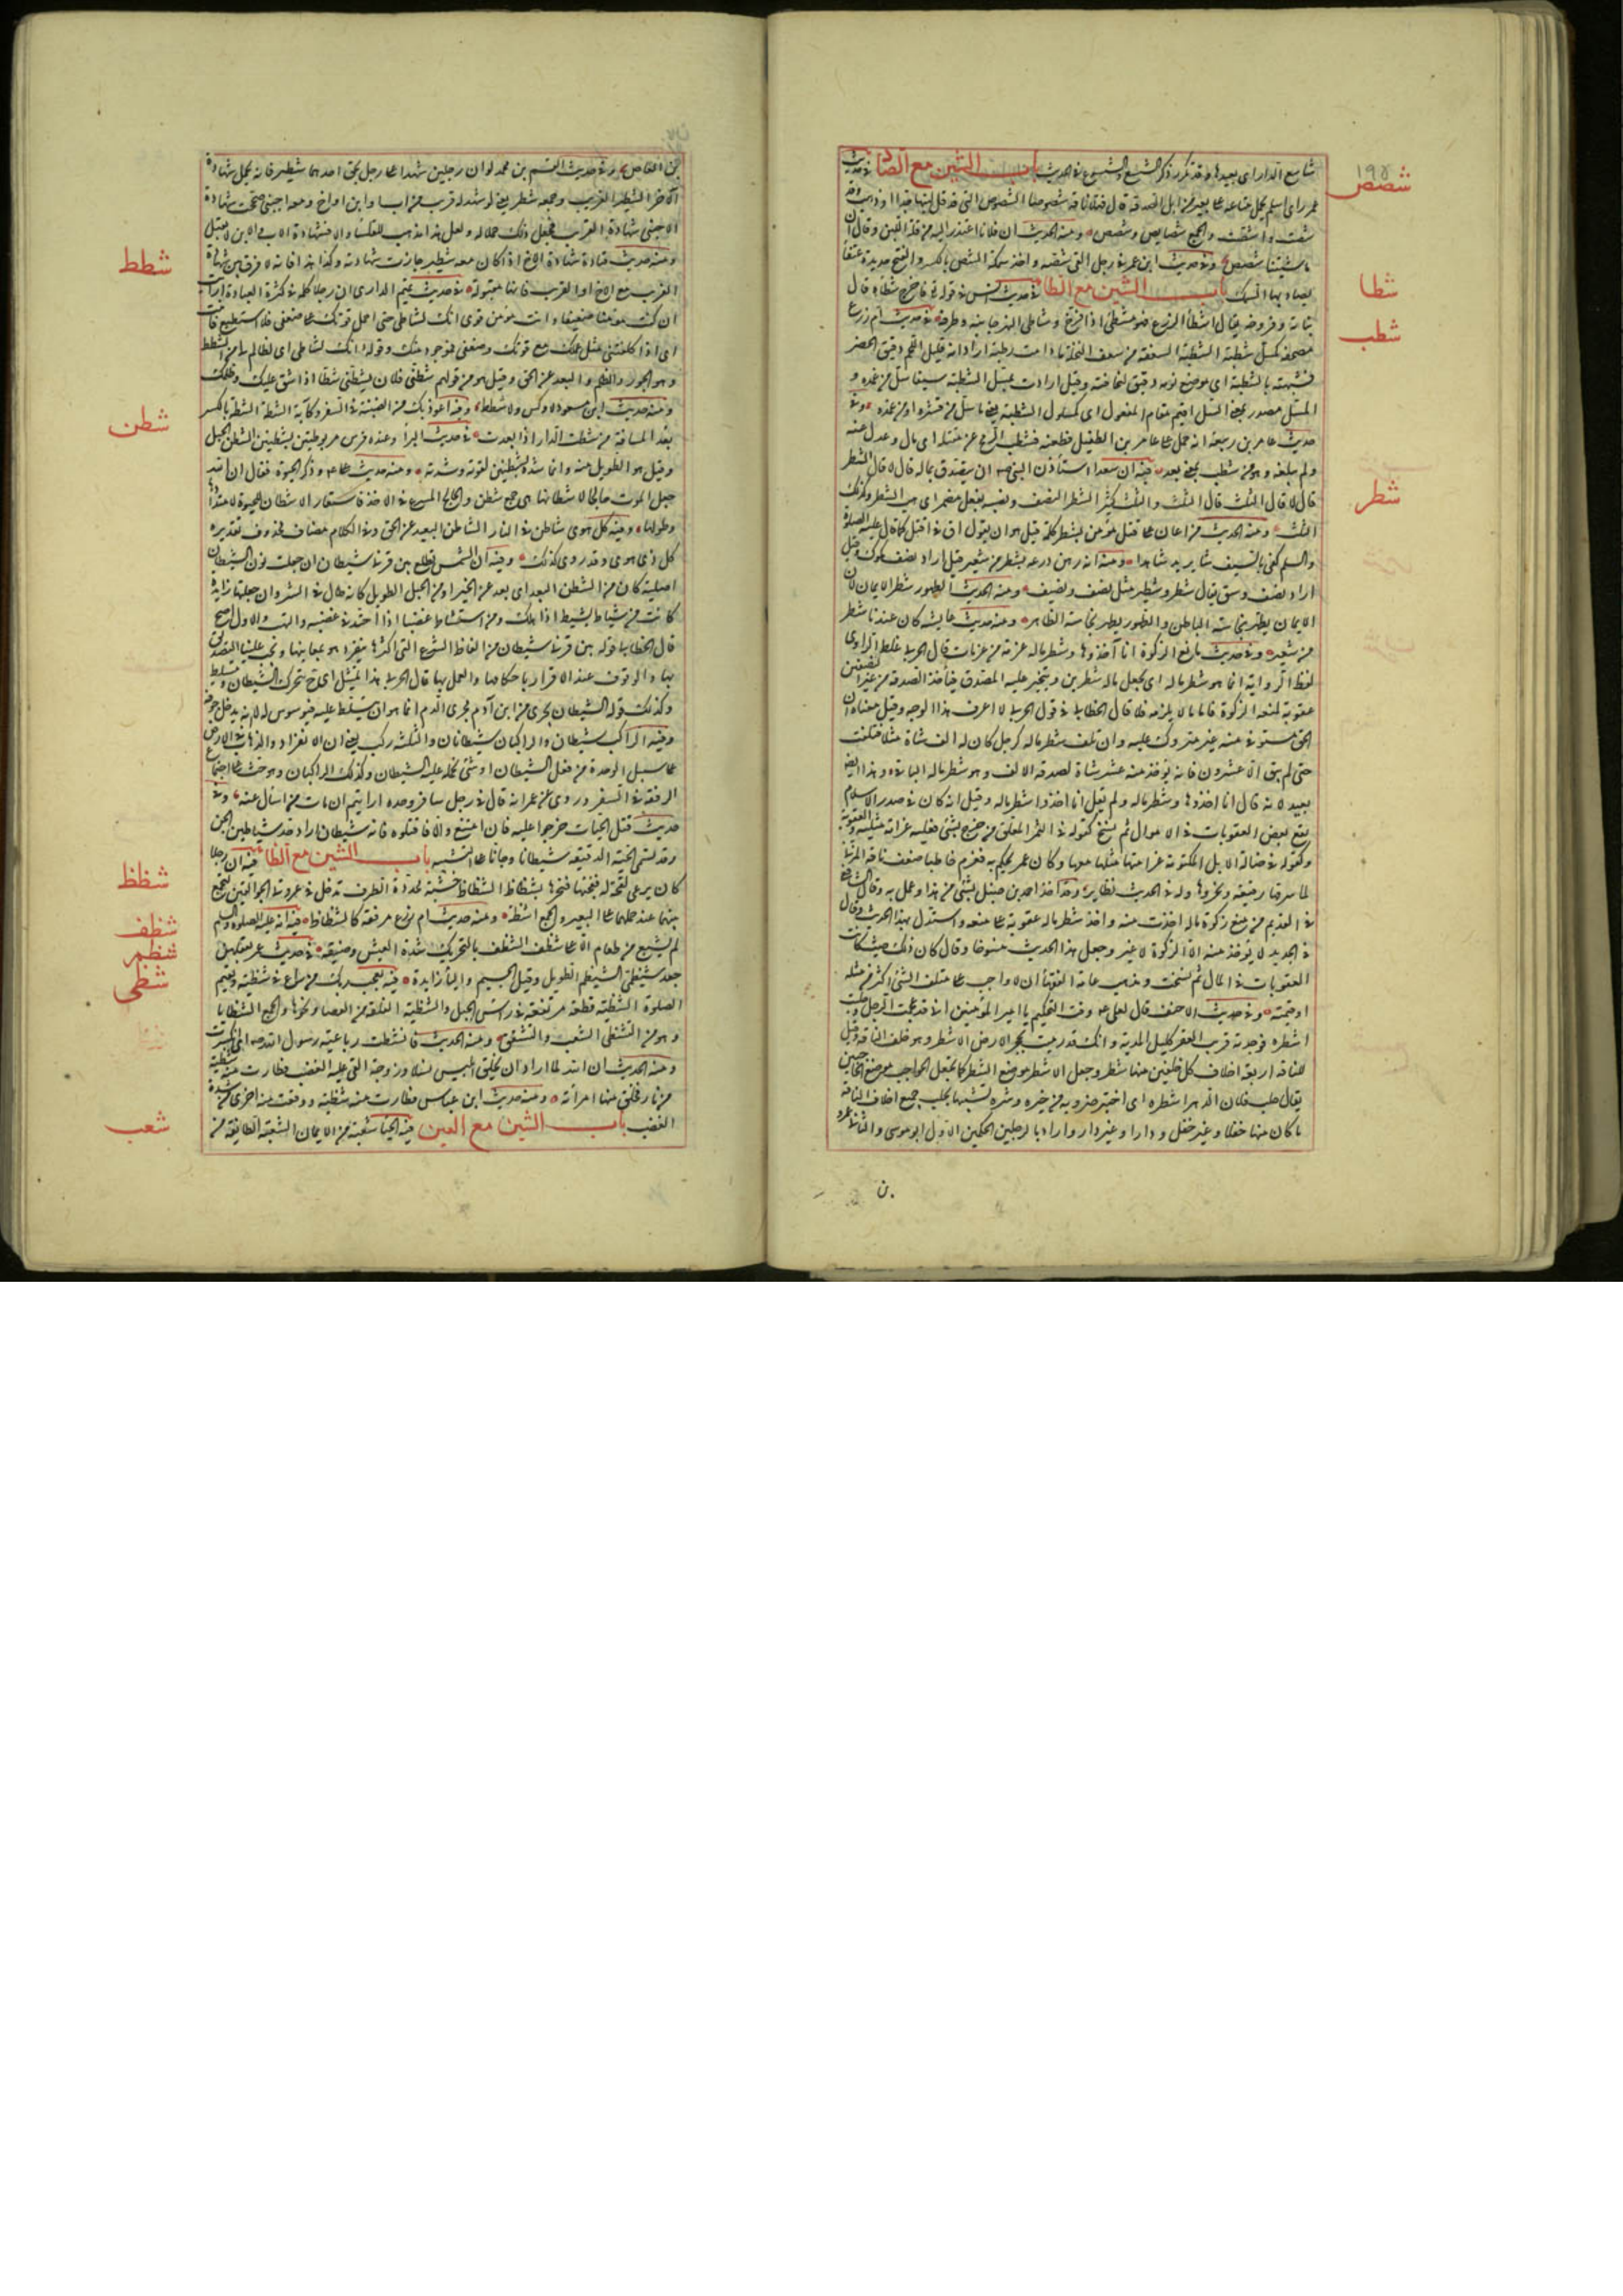 ١٩٥
شاسع الدار اى بعيدها وقد تكرر ذكر الشسع والشسوع فى الحديث باب الشين مع الصاد فى حديث
شصص
عمر راى اسلم يحمل متاعه على بعير من ابل الصدقة قال فهلا ناقة شصوصا الشصوص التى قد قل لبنها جدا او ذهب وقد
شصت واشصت والجمع شصايص وشصص ومنه الحديث ان فلانا اعتذر اليه من قلة اللبن وقال ان
ماشيتنا شصص وفى حديث ابن عمر فى رجل القى شصه واخذ سمكة الشص بالكسر والفتح حديدة عقفا
يصاد بها السمك باب الشين مع الطا فى حديث انس فى قوله تع فاخرج شطاه قال
شطا
نباته وفروخه يقال اشطا الزرع فهو مشطئ اذا فرخ وشاطى النهر جانبه وطرفه فى حديث ام زرع
شطب
مضجعه كمسل شطبة الشطبة السعفة من سعف النخلة ما دامت رطبة ارادت انه قليل اللحم دقيق الخصر
فشبهته بالشطبة اى موضع نومه دقيق لنحافته وقيل ارادت بمسل الشطبة سيفا سل من غمده و
المسل مصدر بمعنى السل اقيم مقام المفعول اى كمسلول الشطبة يعنى ما سل من قشره او من غمده وفى
حديث عامر بن ربيعة انه حمل على عامر بن الطفيل فطعنه فشطب الرمح عن مقتله اى مال وعدل عنه
ولم يبلغه وهو من شطب بمعنى بعد فيه ان سعدا استأذن النبى صم ان يتصدق بماله قال لا قال الشطر
شطر
قال لا قال الثلث قال الثلث والثلث كثير الشطر النصف ونصبه بفعل مضمر اى اهب الشطر وكذلك
الثلث ومنه الحديث من اعان على قتل مؤمن بشطر كلمة قيل هو ان يقول اق فى اقتل كما قال عليه الصلوة
والسلم كفى بالسيف شا يريد شاهدا ومنه انه رهن درعه بشطر من شعير قيل اراد نصف مكوك وقيل
اراد نصف وسق يقال شطر وشطير مثل نصف ونصيف ومنه الحديث الطهور شطر الايمان لان
الايمان يطهر نجاسة الباطن والطهور يطهر نجاسة الظاهر ومنه حديث عايشة كان عندنا شطر
من شعير وفى حديث مانع الزكوة انا آخذوها وشطر ماله عزمة من عزمات قال الحربى غلط الراوى
لفظ الرواية انما هو شطر ماله اى يجعل ماله شطرين ويتخير عليه المصدق فياخذ الصدقة من خير النصفين
عقوبة لمنعه الزكوة فاما ما لا يلزمه فلا قال الخطابى فى قول الحربى لا اعرف هذا الوجه وقيل معناه ان
الحق مستوفى منه غير متروك عليه وان تلف شطر ماله كرجل كان له الف شاة مثلا فتلفت
حتى لم يبق الا عشرون فانه يؤخذ منه عشر شاة لصدقة الالف وهو شطر ماله الباقى وهذا ايضا
بعيد لانه قال انا اخذوها وشطر ماله ولم يقل انا اخذوا شطر ماله وقيل انه كان فى صدر الاسلام
يقع بعض العقوبات فى الاموال ثم نسخ كقوله فى الثمر المعلق من خرج بشئ فعليه غرامة مثليه والعقوبة
وكقوله فى ضالة الابل المكتومة غرامتها مثلها معها وكان عمر يحكم به فغرم حاطبا ضعف ناقة المزنى
لما سرقها رقيقه ونحروها وله فى الحديث نظاير وقد اخذ احمد بن حنبل بشئ من هذا وعمل به وقال الشافعى
فى القديم من منع زكوة ماله اخذت منه واخذ شطر ماله عقوبة على منعه واستدل بهذا الحديث وقال
فى الجديد لا يؤخذ منه الا الزكوة لا غير وجعل هذا الحديث منسوخا وقال كان ذلك حيث كانت
العقوبات فى المال ثم نسخت وذهب عامة الفقها ان لا واجب على متلف الشئ اكثر من مثله
او قيمته وفى حديث الاحنف قال لعلى عم وقت التحكيم يا امير المؤمنين انى قد عجمت الرجل وحلبت
اشطره فوجدته قريب القعر كليل المدية وانك قد رميت بحجر الارض الاشطر وهو خلف الناقة وقيل
للناقة اربعة اخلاف كل خلفين منها شطر وجعل الاشطر موضع الشطر كما تجعل الحواجب موضع الحاجبين
يقال حلب فلان الدهر اشطره اى اختبر ضروبه من خيره وشره تشبيها بحلب جميع اخلاف الناقة
ما كان منها حفلا وغير حفل ودارا وغير دار واراد بالرجلين الحكمين الاول ابو موسى والثانى عمرو
بن العاص وفى حديث القسم بن محمد لو ان رجلين شهدا على رجل بحق احدهما شطير فانه يحمل شهادة
الآخر الشطير الغريب وجمعه شطر يعنى لو شهد له قريب من اب او ابن او اخ ومعه اجنبى صححت شهادة
الاجنبى شهادة القريب فجعل ذلك حملا له ولعل هذا مذهب للقسم والا فشهادة الاب والابن لا تقبل
ومنه حديث قتادة شهادة الاخ اذا كان معه شطير جازت شهادته وكذا هذا فانه لا فرق بين شهادة
شطط
الغريب مع الاخ او القريب فانها مقبولة فى حديث تميم الدارى ان رجلا كلمه فى كثرة العبادة فقال ارايت
ان كنت مؤمنا ضعيفا وانت مؤمن قوى انك لشاطى حتى احمل قوتك على ضعفى فلا استطيع فانبت
اى اذا كلفتنى مثل عملك مع قوتك وضعفى فهو جور منك وقوله انك لشاطى اى لظالم لى من الشطط
وهو الجور والظلم والبعد عن الحق وقيل هو من قولهم شطنى فلان يشطنى شطا اذا شق عليك وظلمك
ومنه حديث ابن مسعود لا وكس ولا شطط وفيه اعوذ بك من الضبنة فى السفر وكآبة الشطة الشطة بالكسر
شطن
بعد المسافة من شطت الدار اذا بعدت فى حديث البرا وعنده فرس مربوطة بشطنين الشطن الحبل
وقيل هو الطويل منه وانما شده بشطنين لقوته وشدته ومنه حديث على عم وذكر الحيوة فقال ان الله
جعل الموت خالجا لاشطانها هى جمع شطن والخالج المسرع فى الاخذ فاستعار الاشطان للحيوة لامتدادها
وطولها وفيه كل هوى شاطن فى النار الشاطن البعيد عن الحق وفى الكلام مضاف محذوف تقديره
كل ذى هوى وقد روى كذلك وفيه ان الشمس تطلع بين قرنى شيطان ان جعلت نون الشيطان
اصلية كان من الشطن البعد اى بعد عن الخير او من الحبل الطويل كانه طال فى الشر وان جعلتها زايدة
كانت من شاط يشيط اذا هلك ومن استشاط غضبا اذا احتد فى غضبه والتهب والاول اصح
قال الخطابى قوله بين قرنى شيطان من الفاظ الشرع التى اكثرها ينفرد هو بمعانيها ويجب علينا التصديق
بها والوقوف عند الاقرار باحكامها والعمل بها قال الحربى هذا تمثيل اى ح يتحرك الشيطان ويتسلط
وكذلك قوله الشيطان يجرى من ابن آدم مجرى الدم انما هو ان يتسلط عليه فيوسوس له لا انه يدخل جوفه
وفيه الراكب شيطان والراكبان شيطانان والثلثة ركب يعنى ان الانفراد والذهاب فى الارض
على سبيل الوحدة من فعل الشيطان او شئ يحمله عليه الشيطان وكذلك الراكبان وهو حث على اجتماع
الرفقة فى السفر وروى عن عمر انه قال فى رجل سافر وحده ارايتم ان مات من اسأل عنه وفى
حديث قتل الحيات حرجوا عليه فان امتنع والا فاقتلوه فانه شيطان اراد احد شياطين الجن
وقد تسمى الحية الدقيقة شيطانا وجانا على التشبيه باب الشين مع الظا فيه ان رجلا
شظظ
كان يرعى لقحة له فنحرها بشظاظ الشظاظ خشبة محددة الطرف تدخل فى عروتى الجوالقين لتجمع
بينهما عند حملهما على البعير والجمع اشظة ومنه حديث ام زرع مرفقه كالشظاظ فيه انه عليه الصلوة والسلم
شظف
لم يشبع من طعام الا على شظف الشظف بالتحريك شدة العيش وضيقه فى حديث عمر يعقلهن
شظم
جعد شيظمى الشيظم الطويل وقيل الجسيم واليا زايدة فيه يعجب ربك من راع فى شظية يقيم
شظى
الصلوة الشظية قطعة مرتفعة فى راس الجبل والشظية الفلقة من العصا ونحوها والجمع الشظايا
وهو من التشظى التشعب والتشقق ومنه الحديث فانشظت رباعية رسول الله صم اى انكسرت
ومنه الحديث ان الله لما اراد ان يخلق لابليس نسلا وزوجة القى عليه الغضب فطارت منه شظية
من نار فخلق منها امرأته ومنه حديث ابن عباس فطارت منه شظية ووقعت منه اخرى من شدة
الغضب باب الشين مع العين فيه الحيا شعبة من الايمان الشعبة الطايفة من
شعب